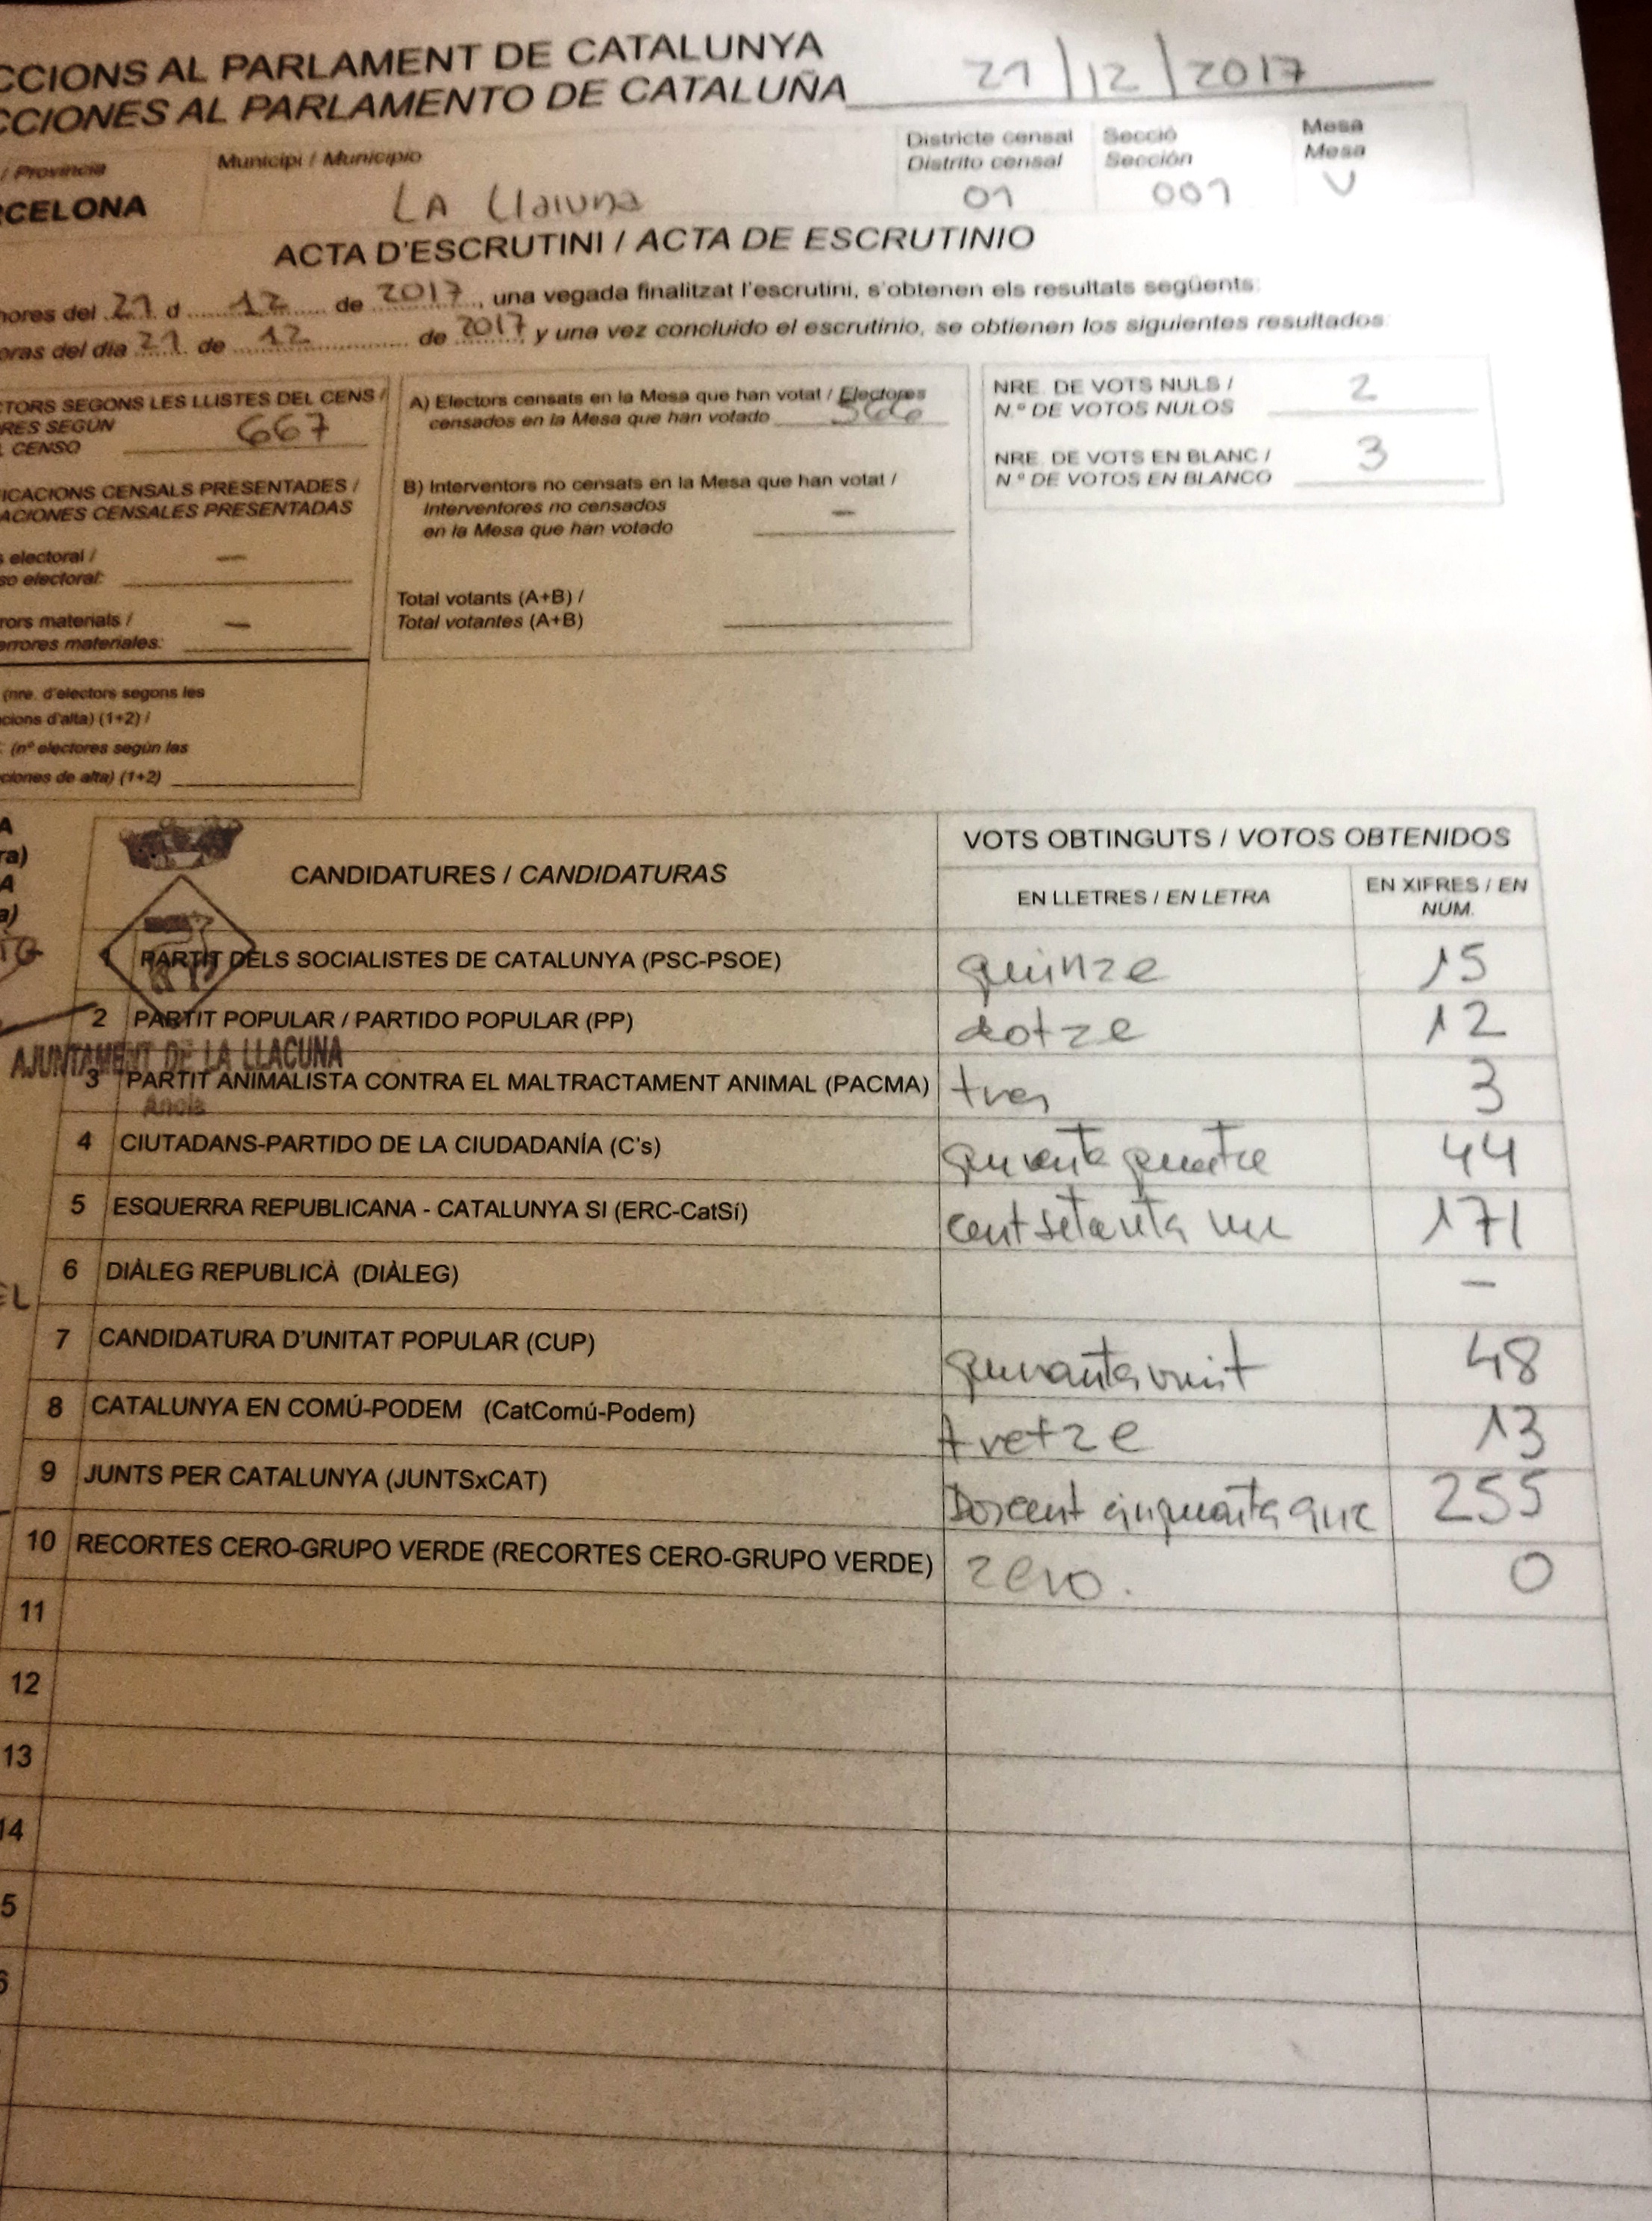 CCIONS AL PARLAMENT DE CATALUNYA
CCIONES AL PARLAMENTO DE CATALUÑA 21/12/2017
/ Provincia Municipi / Municipio Districte censal Secció Mesa
Distrito censal Sección Mesa
RCELONA LA Llacuna 01 001 U
ACTA D'ESCRUTINI / ACTA DE ESCRUTINIO
hores del 21 d 12 de 2017, una vegada finalitzat l'escrutini, s'obtenen els resultats següents:
oras del día 21 de 12 de 2017 y una vez concluido el escrutinio, se obtienen los siguientes resultados:
CTORS SEGONS LES LLISTES DEL CENS /
RES SEGÚN
CENSO 667
ICACIONS CENSALS PRESENTADES /
ACIONES CENSALES PRESENTADAS
s electoral /
so electoral: —
rors materials /
errores materiales: —
(nre. d'electors segons les
cions d'alta) (1+2) /
(nº electores según las
ciones de alta) (1+2)
A) Electors censats en la Mesa que han votat / Electores
censados en la Mesa que han votado 566
B) Interventors no censats en la Mesa que han votat /
Interventores no censados
en la Mesa que han votado —
Total votants (A+B) /
Total votantes (A+B)
NRE. DE VOTS NULS /
N.º DE VOTOS NULOS 2
NRE. DE VOTS EN BLANC /
N.º DE VOTOS EN BLANCO 3
A
ra)
A
a)
CANDIDATURES / CANDIDATURAS VOTS OBTINGUTS / VOTOS OBTENIDOS
EN LLETRES / EN LETRA EN XIFRES / EN
NUM.
1 PARTIT DELS SOCIALISTES DE CATALUNYA (PSC-PSOE) quinze 15
2 PARTIT POPULAR / PARTIDO POPULAR (PP) dotze 12
AJUNTAMENT DE LA LLACUNA
3 PARTIT ANIMALISTA CONTRA EL MALTRACTAMENT ANIMAL (PACMA) tres 3
Anoia
4 CIUTADANS-PARTIDO DE LA CIUDADANÍA (C's) quranta quatre 44
5 ESQUERRA REPUBLICANA - CATALUNYA SI (ERC-CatSí) cent setanta un 171
6 DIÀLEG REPUBLICÀ (DIÀLEG) —
EL
7 CANDIDATURA D'UNITAT POPULAR (CUP) quranta vuit 48
8 CATALUNYA EN COMÚ-PODEM (CatComú-Podem) tretze 13
9 JUNTS PER CATALUNYA (JUNTSxCAT) Doscent cinquanta 255
10 RECORTES CERO-GRUPO VERDE (RECORTES CERO-GRUPO VERDE) zero. 0
11
12
13
14
5
6